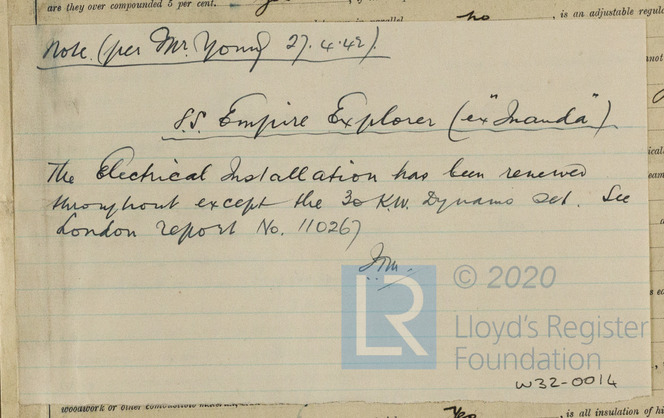 are they over compounded 5 per cent.
is an adjustable regul
Note. (per Mr. Young 27.4.42).
S.S. Empire Explorer (ex "Inanda")
The Electrical Installation has been renewed
throughout except the 30 K.W. Dynamo set. See
London report No. 110267
© 2020
LR
Lloyd's Register
Foundation
W32-0014
woodwork or other
is all insulation of hi